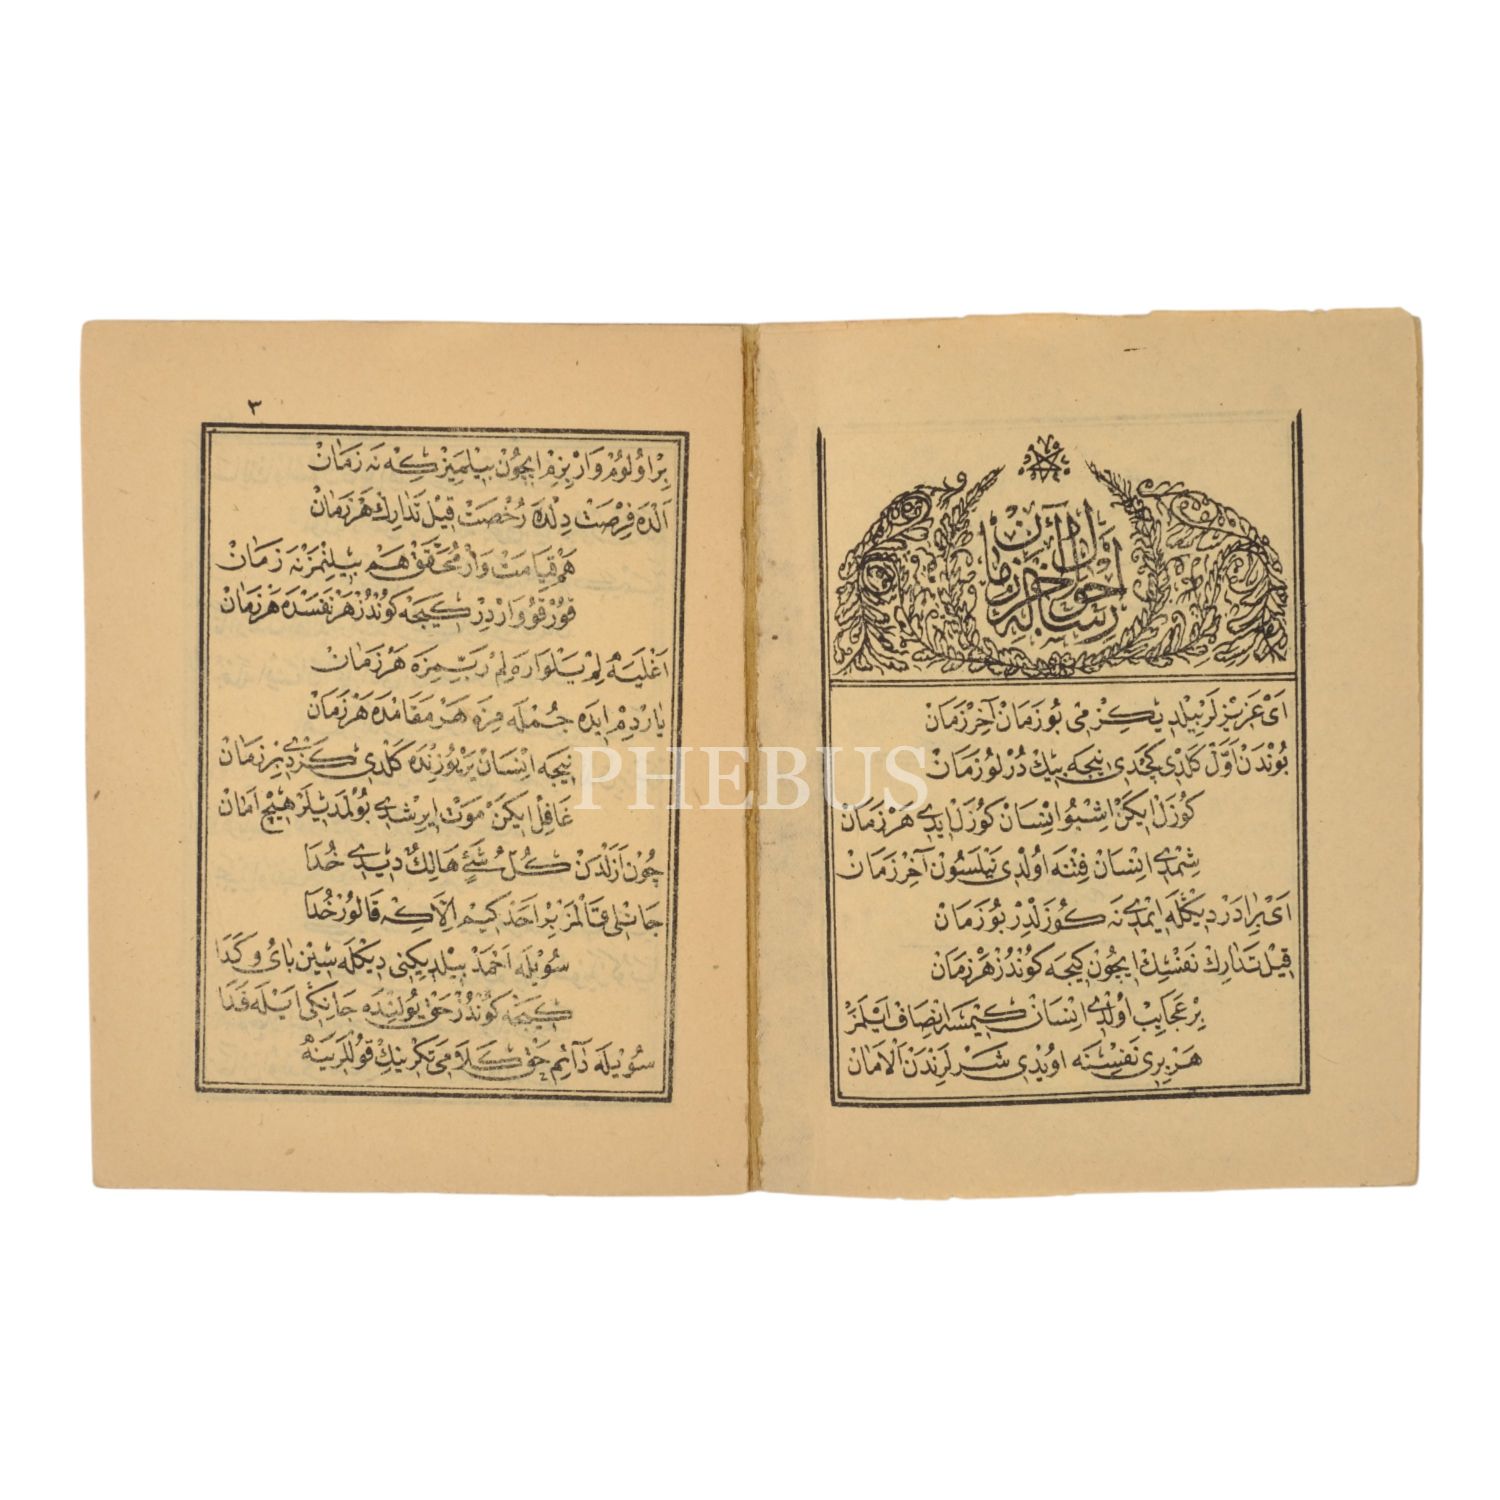 رساله احوال آخر زمان
اَىْ عَزِيزْ لَرْ بِيلْدِيكِزْمِى بُو زَمَانْ آخِرْزَمَانْ
بُونْدَنْ اَوَّلْ كَلْدِى كَچْدِى نِيجَه بِيكْ دُرْلُو زَمَانْ
كُوزَلْ اِيكَنْ اِشْبُو اِنْسَانْ كُوزَلْ اِيدِى هَرْ زَمَانْ
شِمْدِى اِنْسَانْ فِتْنَه اُولْدِى نَيْلَسُونْ آخِرْ زَمَانْ
اَىْ بِرَادَرْ دِيكْلَه اِيمْدِى نَه كُوزَلْدِرْ بُو زَمَانْ
قِيلْ تَدَارِكْ نَفْسِكْ اِيچُونْ كِيجَه كُونْدُزْ هَرْزَمَانْ
بِرْ عَجَايِبْ اُولْدِى اِنْسَانْ كِيمْسَه اِنْصَافْ اَيْلَمَزْ
هَرْ بِرِى نَفْسِنَه اُويْدِى شَرْلَرِنْدَنْ اَلْاَمَانْ
٣
بِرْ اُولُومْ وَارْ بِزِمْ اِيچُونْ بِيلْمَيِزْ كِه نَه زَمَانْ
اَلْدَه فِرْصَتْ دِلْدَه رُخْصَتْ قِيلْ تَدَارِكْ هَرْزَمَانْ
هَمْ قِيَامَتْ وَارْ مُحَقَّقْ هَمْ بِيلِنْمَزْ نَه زَمَانْ
قُورْقُو وَارْدِرْ كِيجَه كُونْدُزْ هَرْ نَفَسْدَه هَرْ زَمَانْ
اَغْلَيَه لِمْ يَلْوَارَه لِمْ رَبِّمِزَه هَرْ زَمَانْ
يَارْدِمْ اِيدَه جُمْلَه مِزَه هَرْ مَقَامْدَه هَرْزَمَانْ
نِيجَه اِنْسَانْ يَرْ يُوزِنْدَه كَلْدِى كَزْدِى بِرْ زَمَانْ
غَافِلْ اِيكَنْ مَوْتْ اِيرِشْدِى بُولْمَدِيلَرْ هِيچْ اَمَانْ
چُونْ اَزَلْدَنْ كُلُّ شَىْءٍ هَالِكٌ دِيدِى خُدَا
جَانْلِى قَالْمَزْ بِرْ اَحَدْ كِيمْ اِلَّا كِه قَالُورْ خُدَا
سُويْلَه اَحْمَدْ بِيلْدِيكِنِى دِيكْلَه سِينْ بَاىْ وَ كَدَا
كِيجَه كُونْدُزْ حَقْ يُولِنْدَه جَانِكِى اَيْلَه فَدَا
سُويْلَه دَائِمْ حَقْ كَلَامِى تَكْرِينِكْ قُوللَرِينَه
PHEBUS